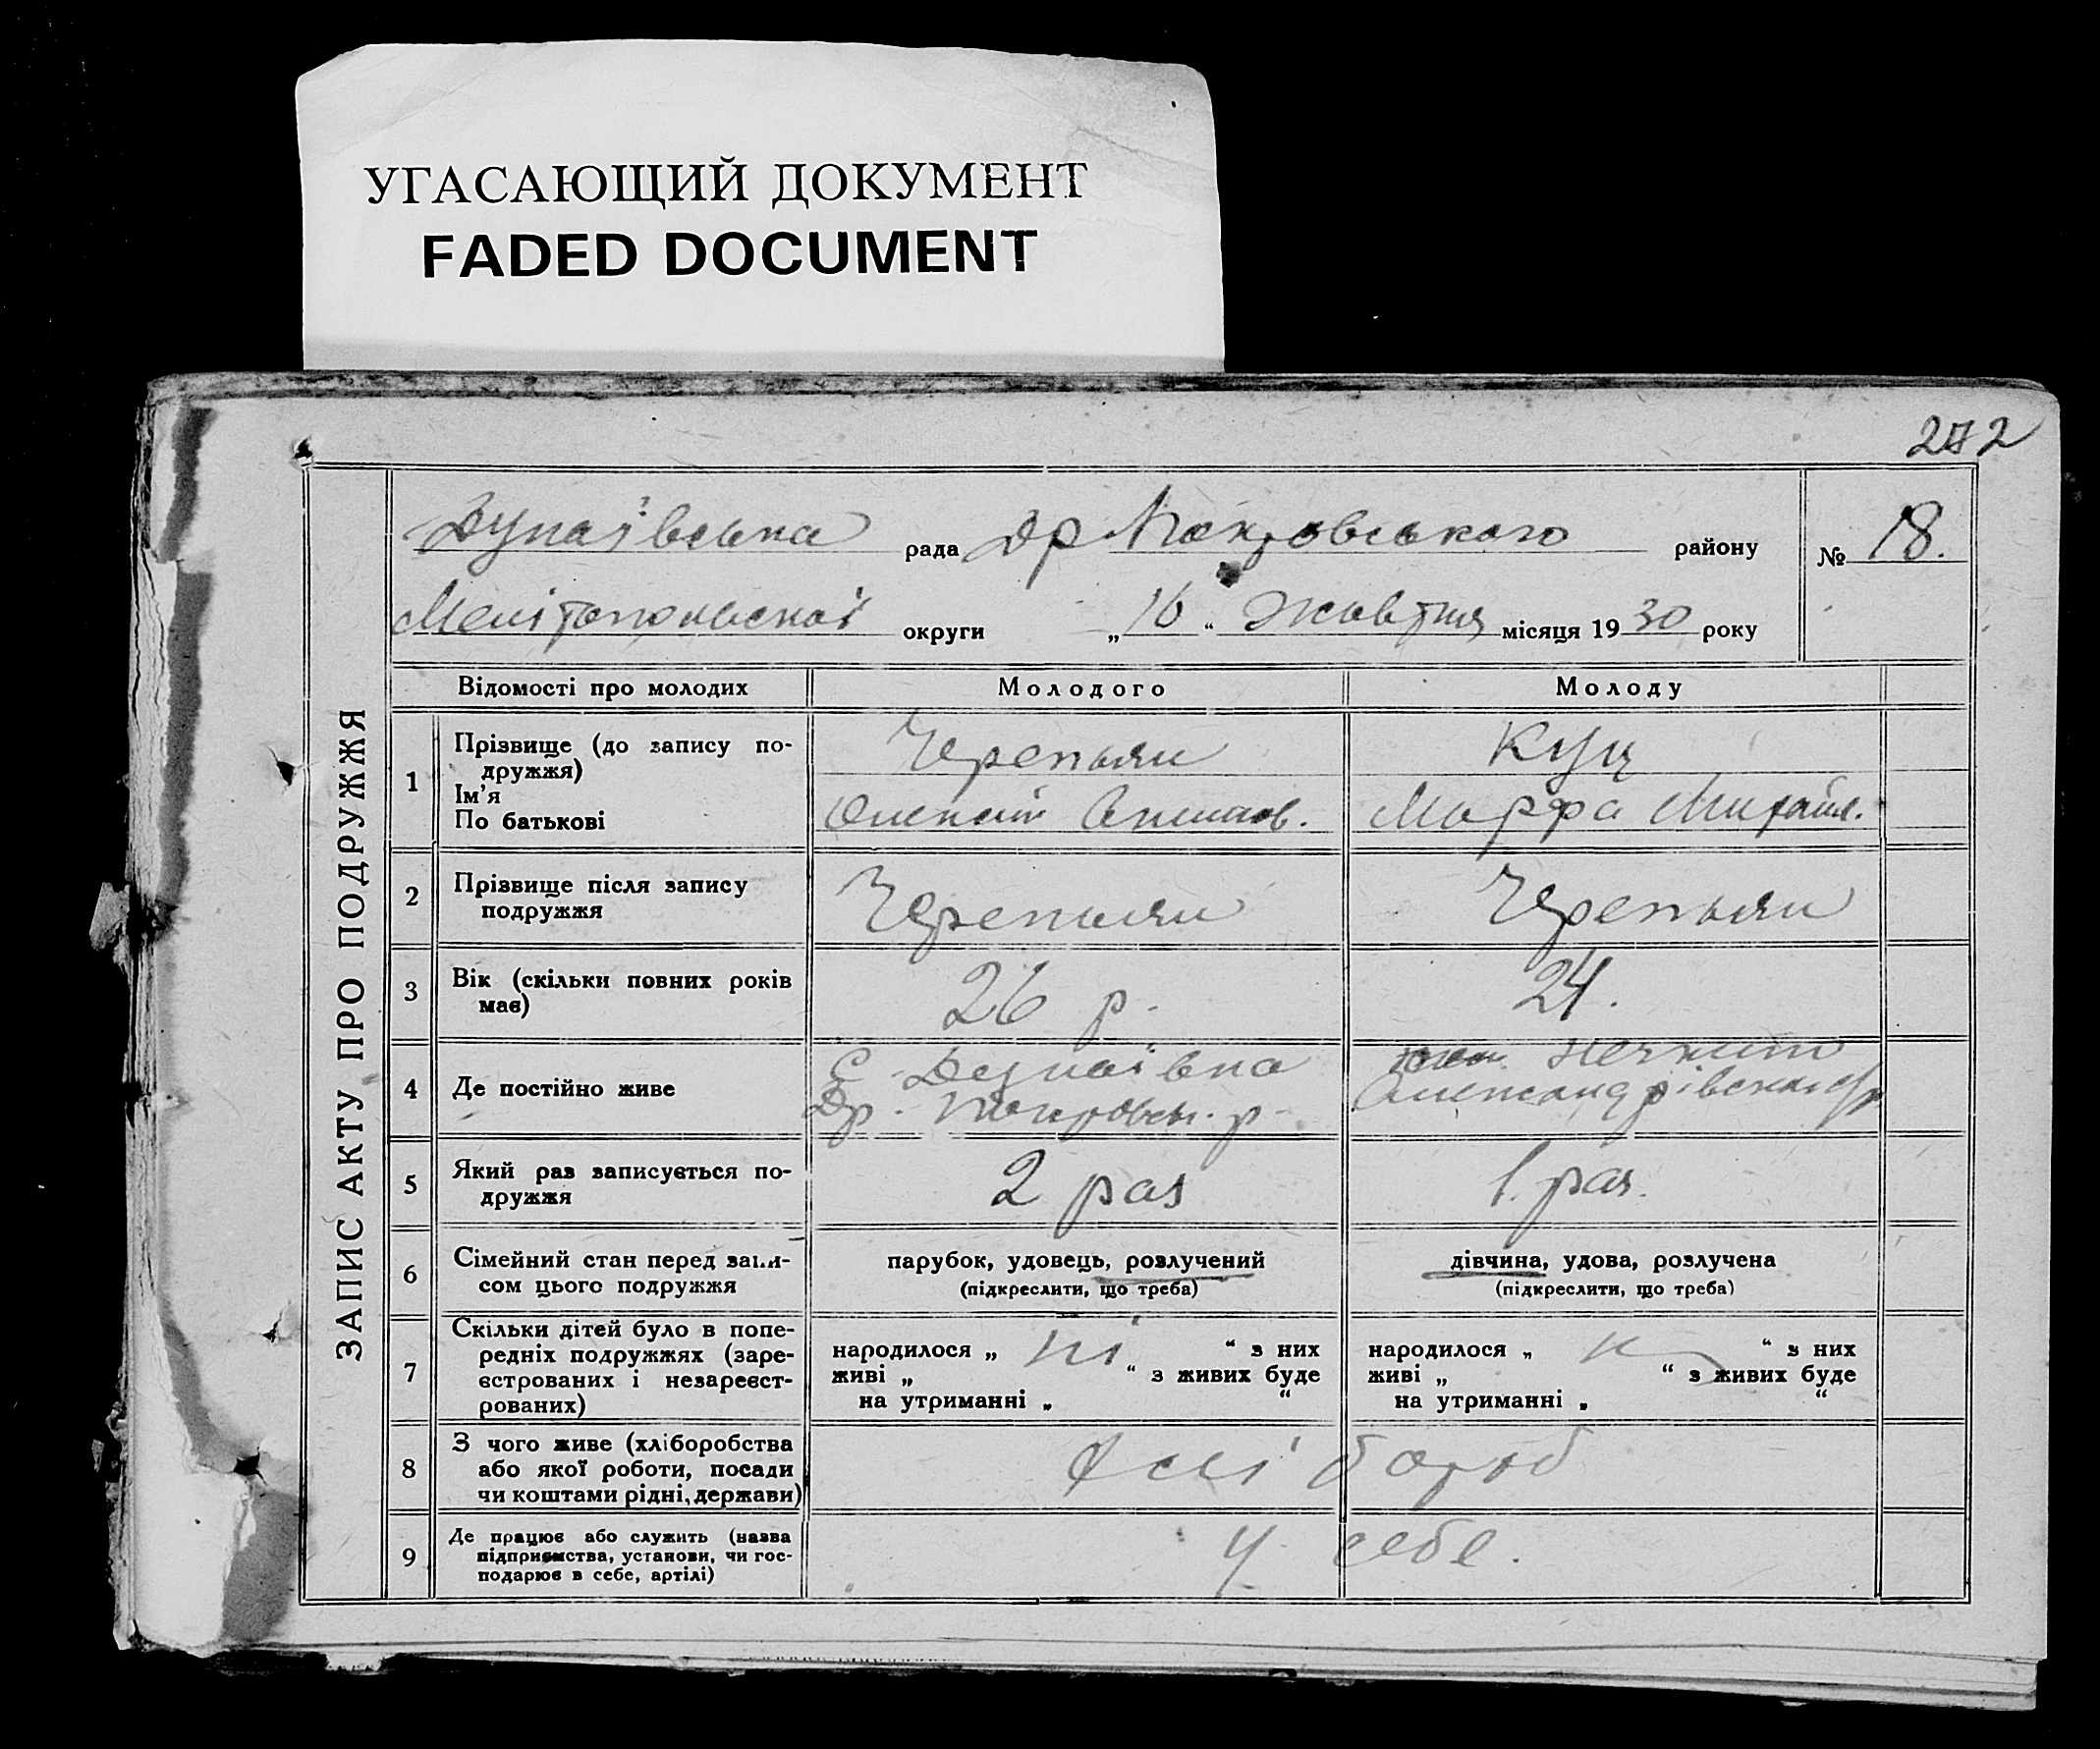 УГАСАЮЩИЙ ДОКУМЕНТ
FADED DOCUMENT
272
ЗАПИС АКТУ ПРО ПОДРУЖЖЯ
Дунаївська рада Др Покровського району № 18.
Мелітопольської округи „16“ Жовтня місяця 1930 року
Відомості про молодих Молодого Молоду
1 Прізвище (до запису по-
дружжя)
Ім'я
По батькові
Черепьян Куц
Олексій Марфа Михайл.
2 Прізвище після запису
подружжя
Черепьян Черепьян
3 Вік (скільки повних років
має)
26 р. 24.
4 Де постійно живе
С. Дунаївка
Др. Покровськ. р.
Олександрівськ
5 Який раз записується по-
дружжя
2 раз 1. раз.
6 Сімейний стан перед запи-
сом цього подружжя
парубок, удовець, розлучений
(підкреслити, що треба)
дівчина, удова, розлучена
(підкреслити, що треба)
7 Скільки дітей було в попе-
редніх подружжях (заре-
єстрованих і незареєст-
рованих)
народилося „ ні “ з них
живі „ “ з живих буде
на утриманні „ “
народилося „ “ з них
живі „ “ з живих буде
на утриманні „ “
8 З чого живе (хліборобства
або якої роботи, посади
чи коштами рідні, держави)
9 Де працює або служить (назва
підприємства, установи, чи гос-
подарює в себе, артілі)
У себе.